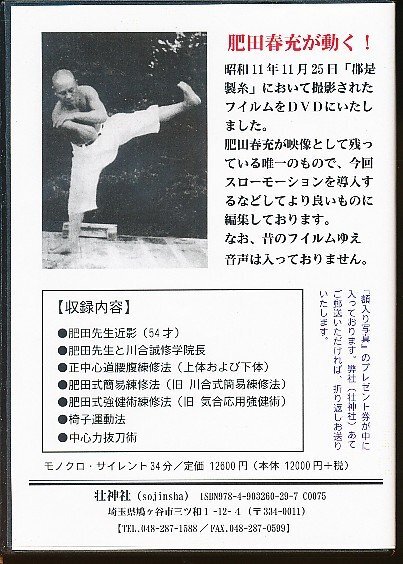 肥田春充が動く！
昭和11年11月25日「郡是
製糸」において撮影された
フイルムをＤＶＤにいたし
ました。
肥田春充が映像として残っ
ている唯一のもので、今回
スローモーションを導入す
るなどしてより良いものに
編集しております。
なお、昔のフイルムゆえ
音声は入っておりません。
『額入り写真』のプレゼント券が中に
入っております。弊社（壮神社）あて
ご郵送いただければ、折り返しお送り
いたします。
【収録内容】
●肥田先生近影（54才）
●肥田先生と川合誠修学院長
●正中心道腰腹練修法（上体および下体）
●肥田式簡易練修法（旧 川合式簡易練修法）
●肥田式強健術練修法（旧 気合応用強健術）
●椅子運動法
●中心力抜刀術
モノクロ・サイレント34分／定価 12600円（本体 12000円＋税）
壮神社（sojinsha） ISBN978-4-903260-29-7 C0075
埼玉県鳩ヶ谷市三ツ和1-12-4（〒334-0011）
【TEL.048-287-1588 ／FAX.048-287-0599】